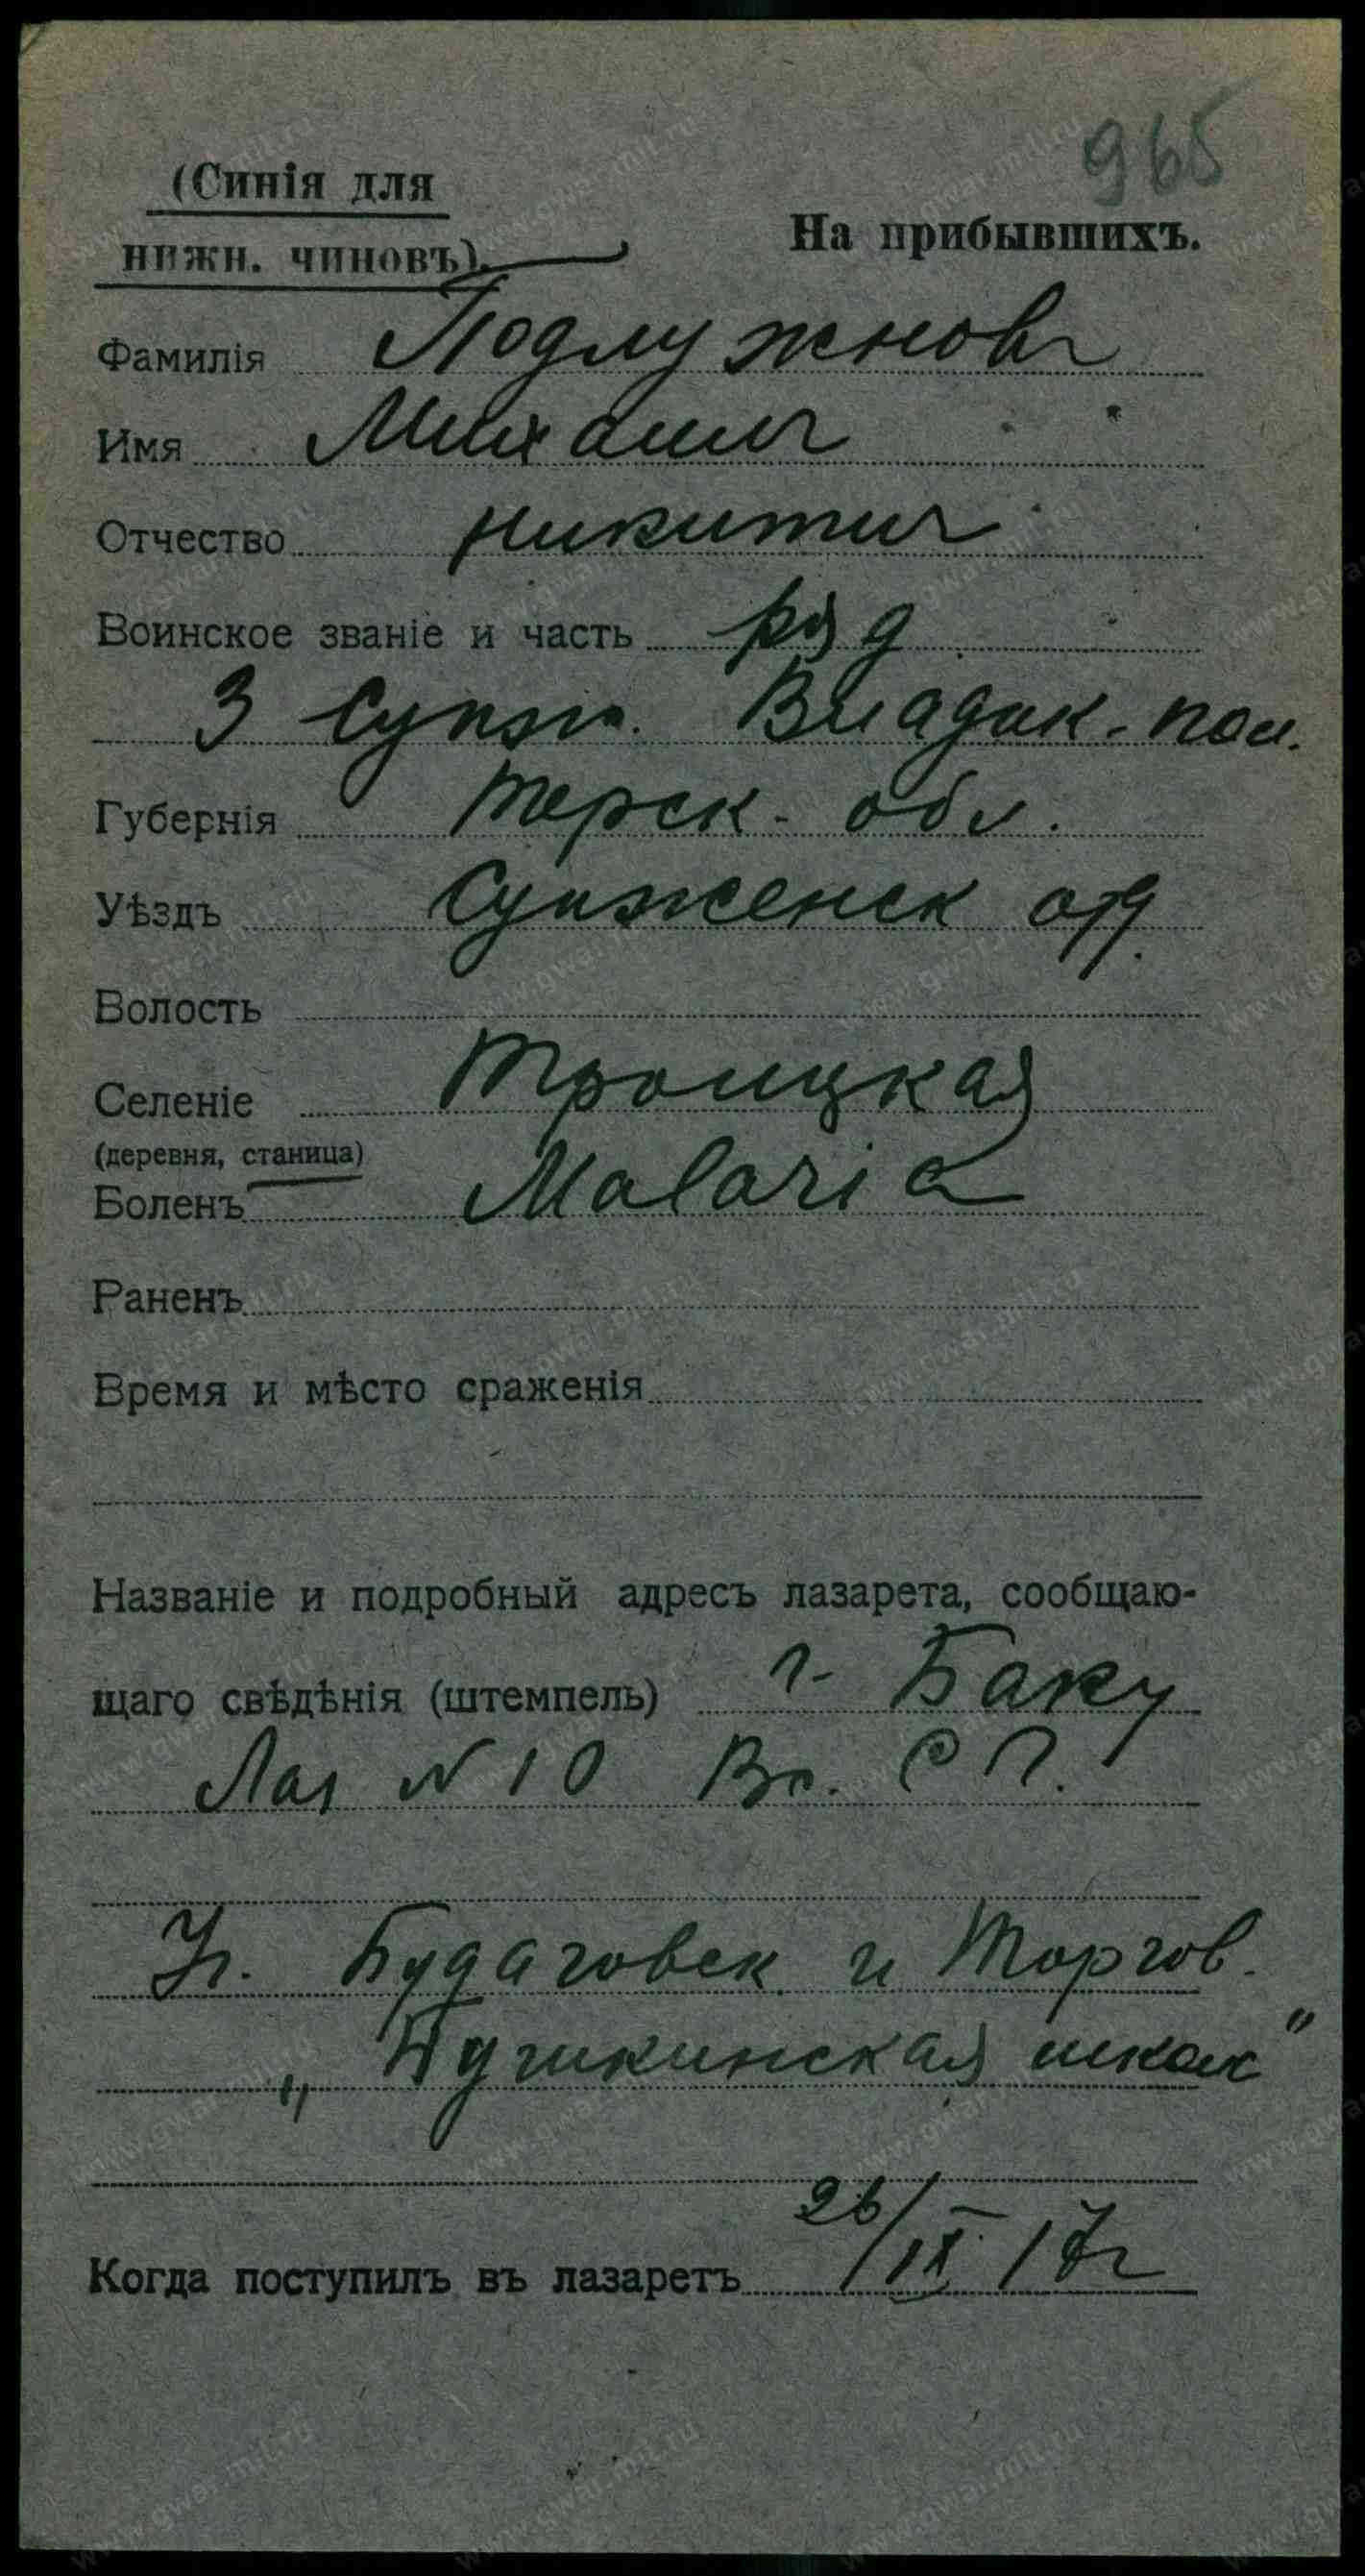 965
(Синія для
нижн. чиновъ).
На прибывшихъ.
Фамилія Подлужновъ
Имя Михаилъ
Отчество Никитич
Воинское званіе и часть ряд
3 Сунж. Владик. пол.
Губернія Терск. обл.
Уѣздъ Сунженск отд.
Волость
Селеніе Троицкая
(деревня, станица)
Боленъ Malaria
Раненъ
Время и мѣсто сраженія
Названіе и подробный адресъ лазарета, сообщаю-
щаго свѣдѣнія (штемпель) г. Баку
Лаз N 10 Вс. С Г.
Уг. Будаговск и Торгов.
„Пушкинская школа"
Когда поступилъ въ лазаретъ 26/IX 17г